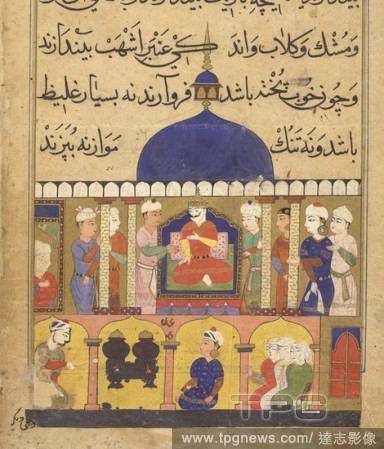 ومشك وكلاب واند كی عنبر اشهب بیندازند
وچون خوب پخته باشد فروآرند نه بسیار غلیظ
باشد ونه تنك موازنه ببرند
TPG
www.tpgnews.com/達志影像